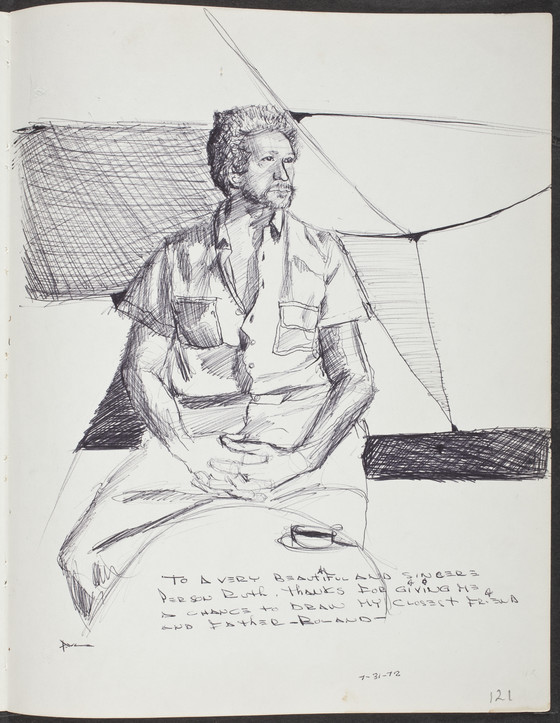 TO A VERY BEAUTIFUL AND SINCERE
PERSON RUTH. THANKS FOR GIVING ME
A CHANCE TO DRAW MY CLOSEST FRIEND
AND FATHER - ROLAND -
7-31-72
121